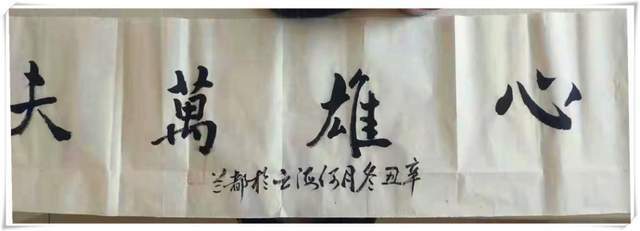 心雄萬夫
辛丑冬月何海云於都兰